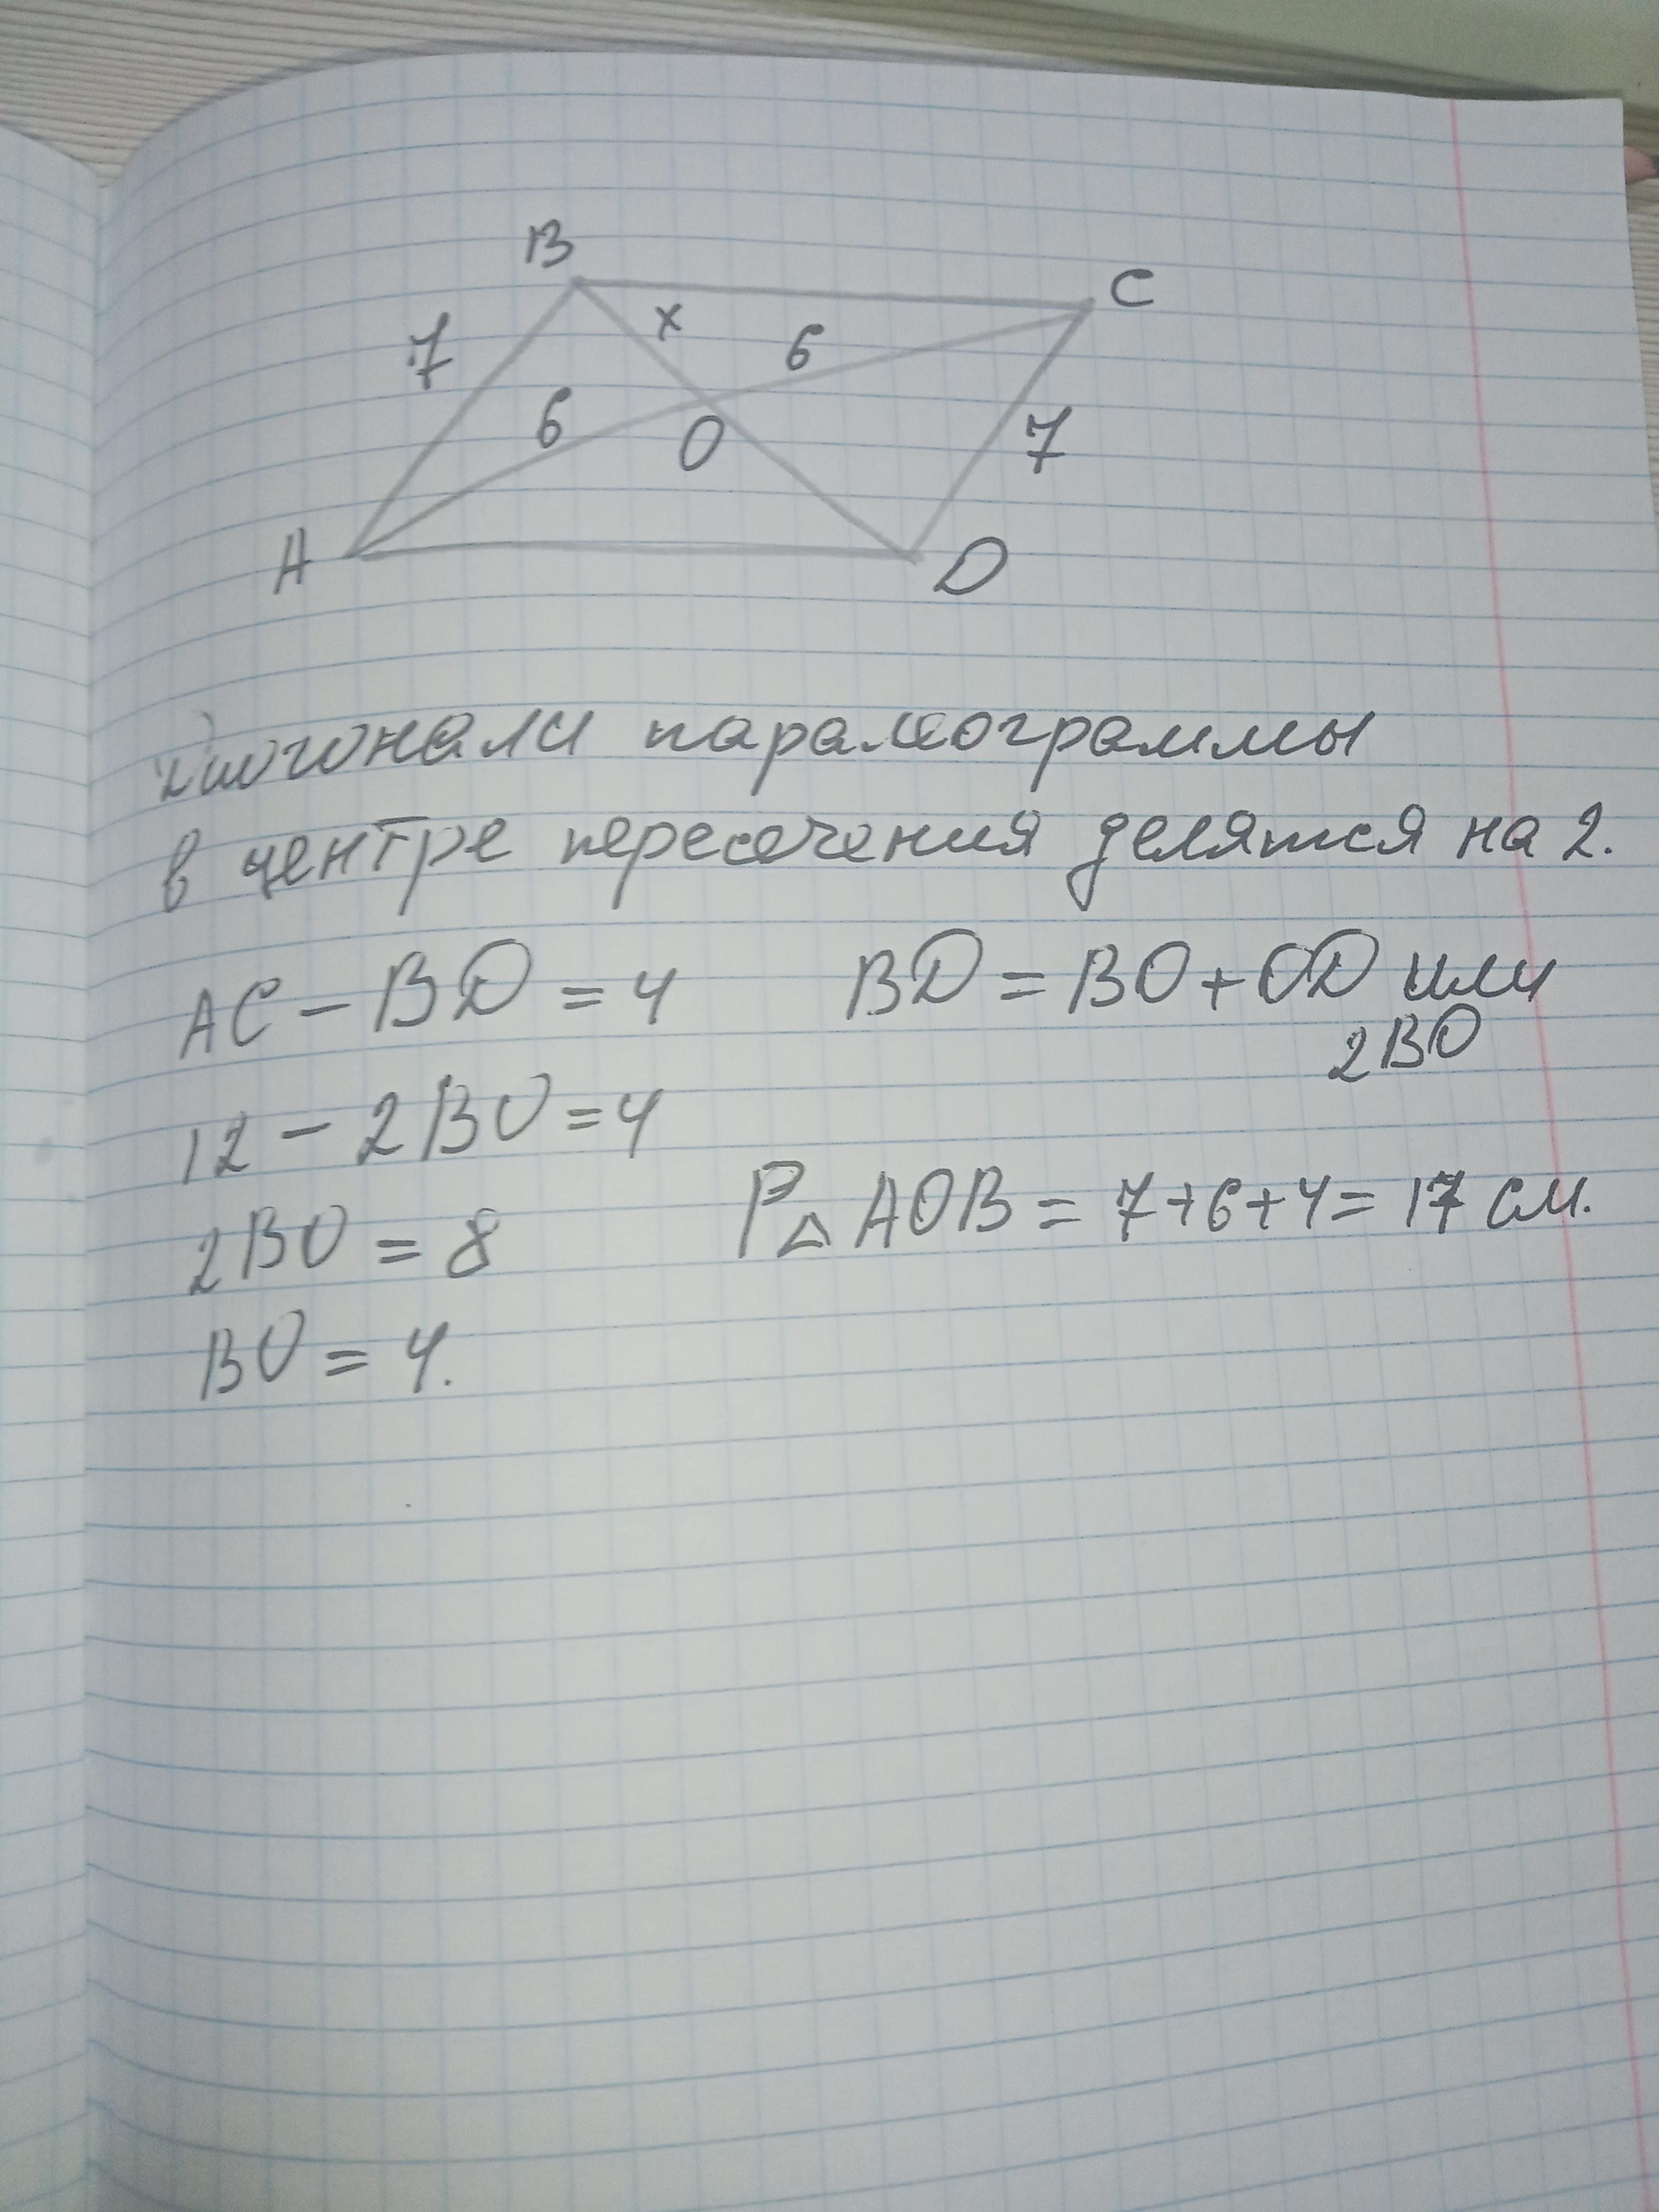 B
C
7
x
6
6
O
7
A
D
Диогонали параллеограммы
в центре пересечения делятся на 2.
AC - BD = 4
BD = BO + OD или
2BO
12 - 2BO = 4
P△ AOB = 7+6+4 = 17 см.
2BO = 8
BO = 4.